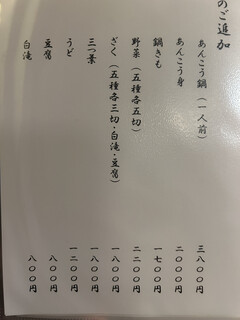 のご追加
あんこう鍋(一人前) 三八〇〇円
あんこう身 二〇〇〇円
鍋きも 一七〇〇円
野菜(五種各五切) 二二〇〇円
ざく(五種各三切・白滝・豆腐) 一八〇〇円
三つ葉 一八〇〇円
うど 一二〇〇円
豆腐 八〇〇円
白滝 八〇〇円